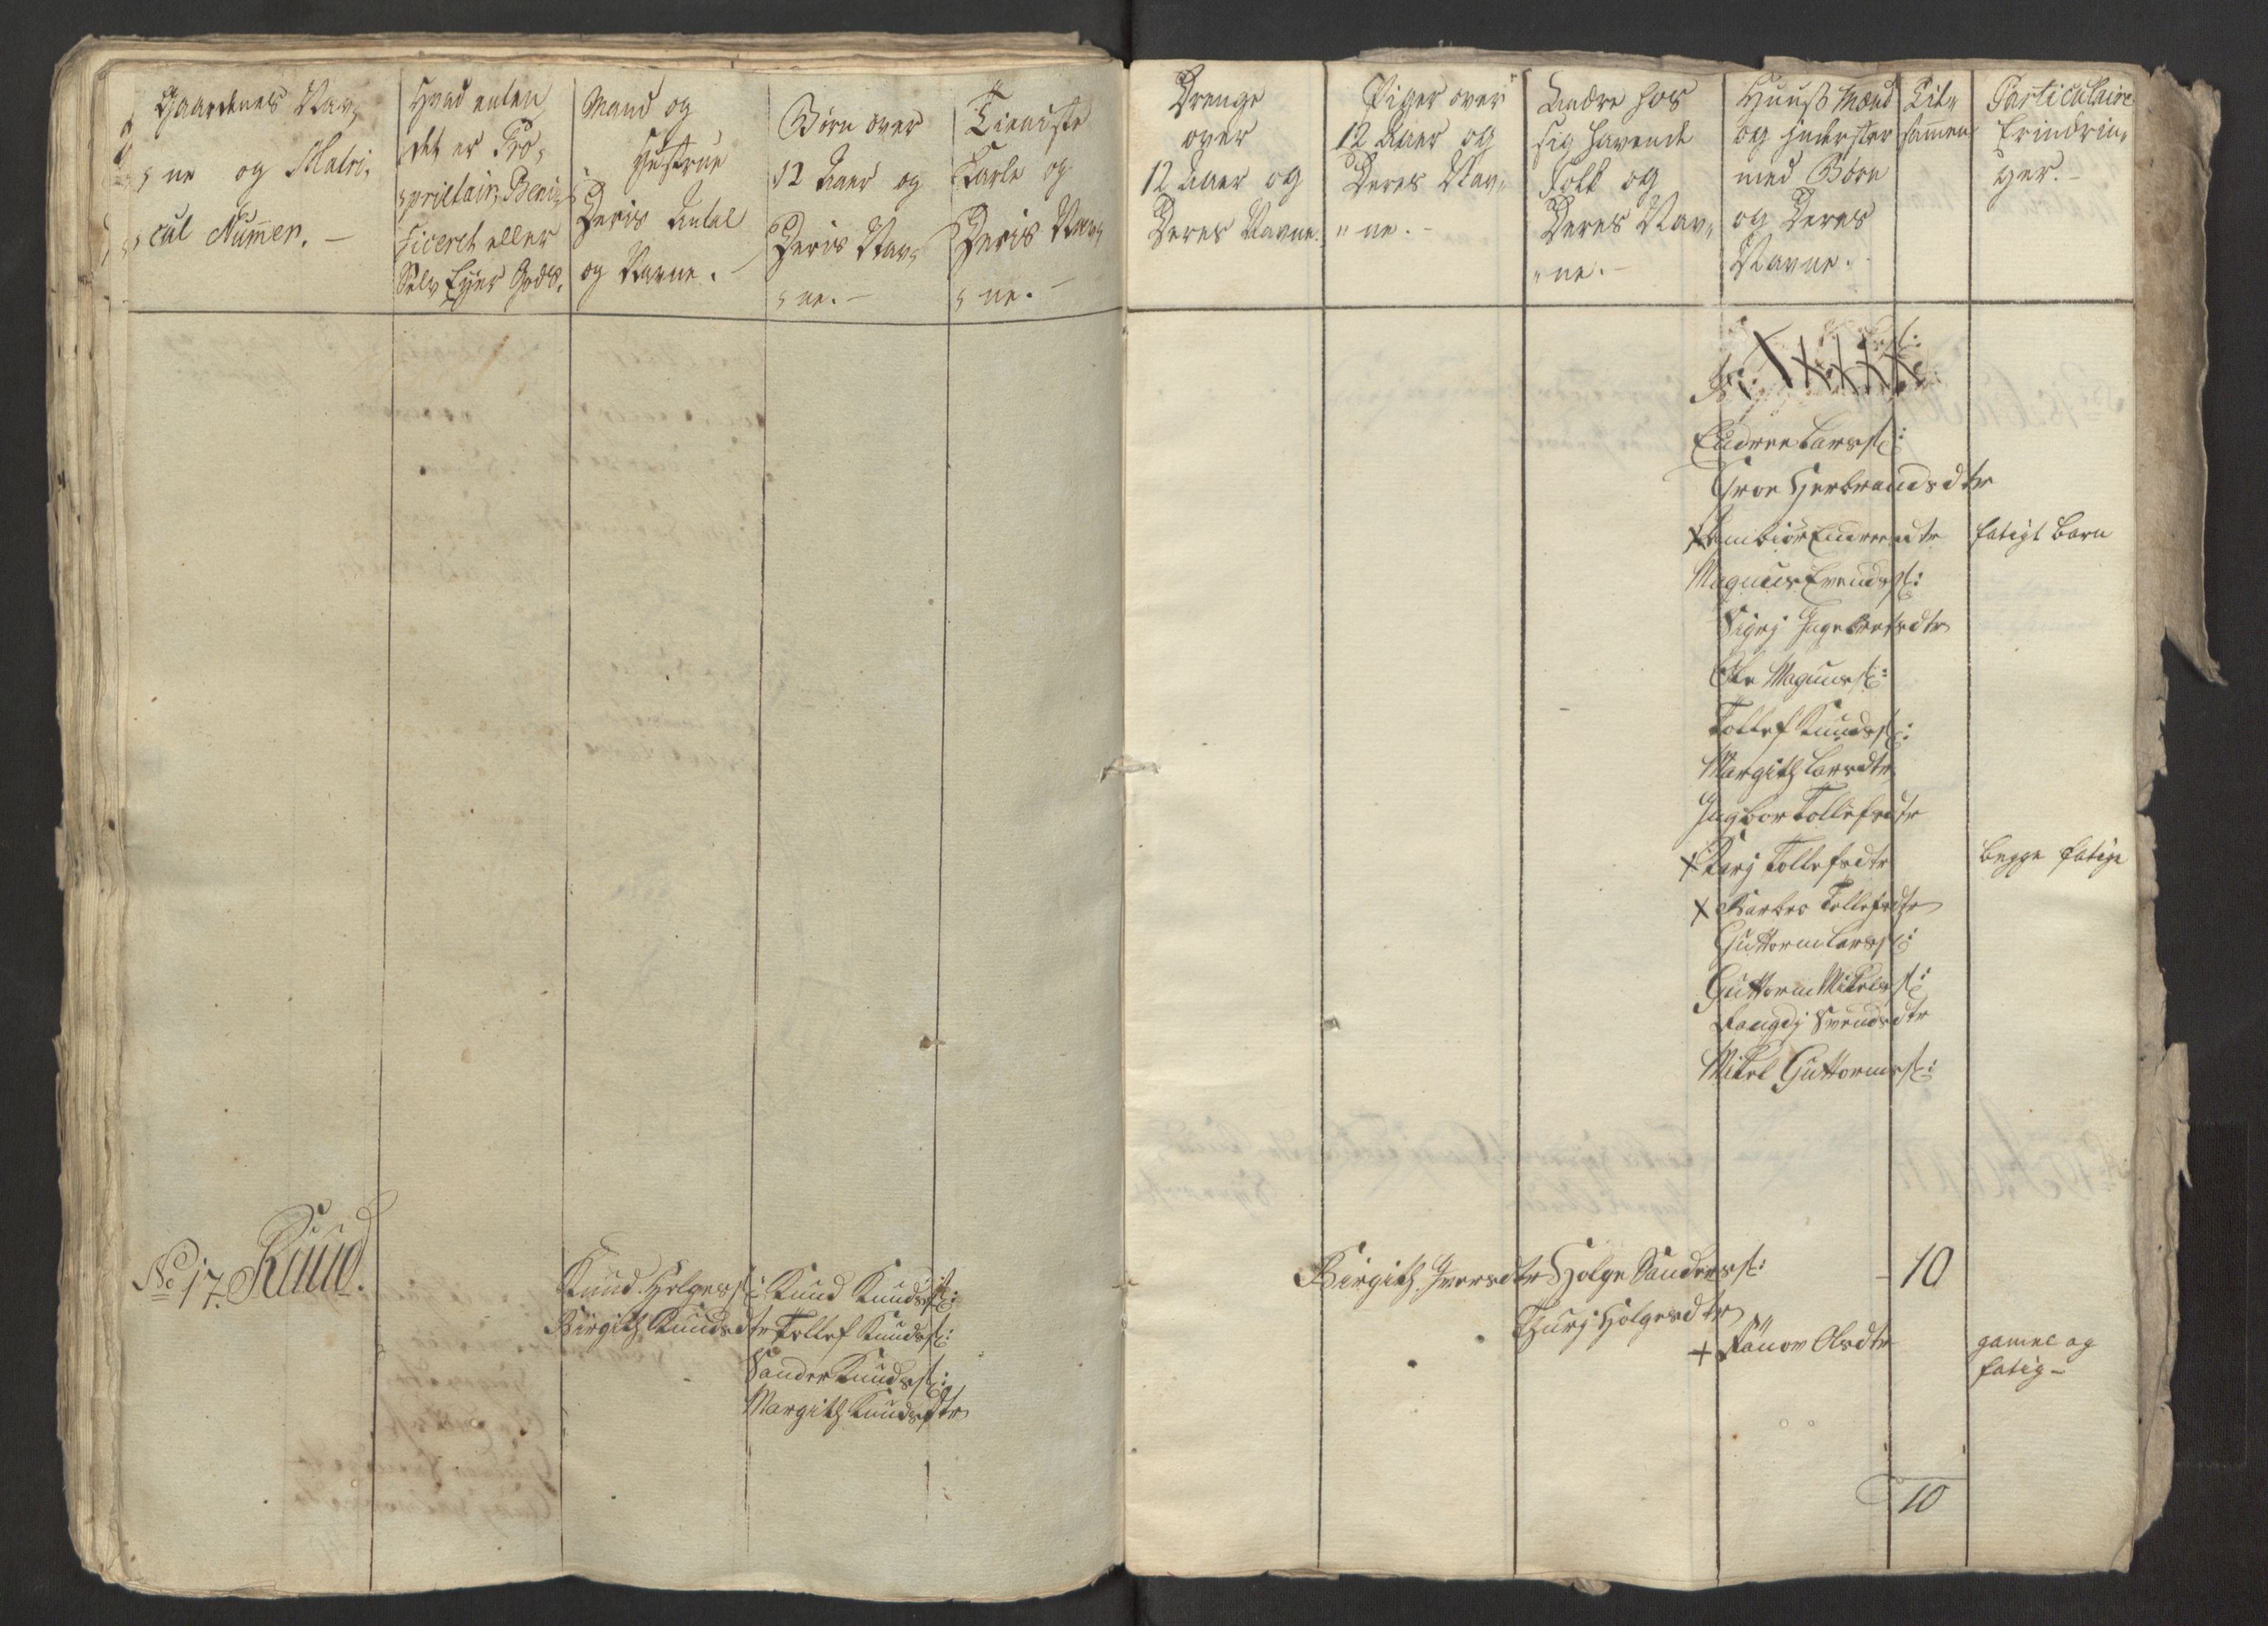 Gaardenes Nav,,
,, ne og Matri,
,, cul Nummer. —
Hvad enten
det er Pro,
,, prietair, Beni,
ficeret eller
Selv Eyer Gods.
Mand og
Hustrue
Deris Antal
og Navne.
Børn over
12 Aaer og
Deris Nav,,
,, ne. —
Tieniste
Karle og
Deris Nav,,
,, ne. —
Drenge
over
12 Aaer og
Deres Navne.
Piger over
12 Aaer og
Deres Nav,,
,, ne. —
Andre hos
sig havende
Folk og
Deres Nav,,
,, ne. —
Huus Mænd
og Inderster
med Børn
og Deres
Navne.
Til,,
sammen
Particulaire
Erindrin,,
ger. —
Endree Larss:
Groe Herbrandsdtr
X Endreesdtr fatigt barn
Magnus Svends:
Sigrj Ingebretsdtr
Ole Magnuss:
Tollef Knuds:
Margith Larsdtr
Ingbor Tollefsdtr
X Karj Tollefsdtr begge fatige
X Barbro Tollefsdtr
Guttorm Larss:
Guttorm Mikels:
Svendsdtr
Mikel Guttorms:
No 17. Ruud.
Knud Helges: Knud Knuds:
Birgith Knudsdtr Tollef Knuds:
Sander Knuds:
Margith Knudsdtr
Birgith Iversdtr Holge Sanders: - 10
Thurj Holgesdtr
+ Olsdtr gamel og
fatig —
10